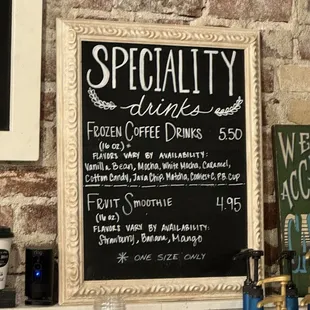 SPECIALITY
drinks
FROZEN COFFEE DRINKS 5.50
(16 oz) *
FLAVORS VARY BY AVAILABILITY:
Vanilla Bean, Mocha, White Mocha, Caramel,
Cotton Candy, Java Chip, Matcha, Cookies+C, PB CUP
FRUIT SMOOTHIE 4.95
(16 oz)
FLAVORS VARY BY AVAILABILITY:
Strawberry, Banana, Mango
* ONE SIZE ONLY
WE
ACC